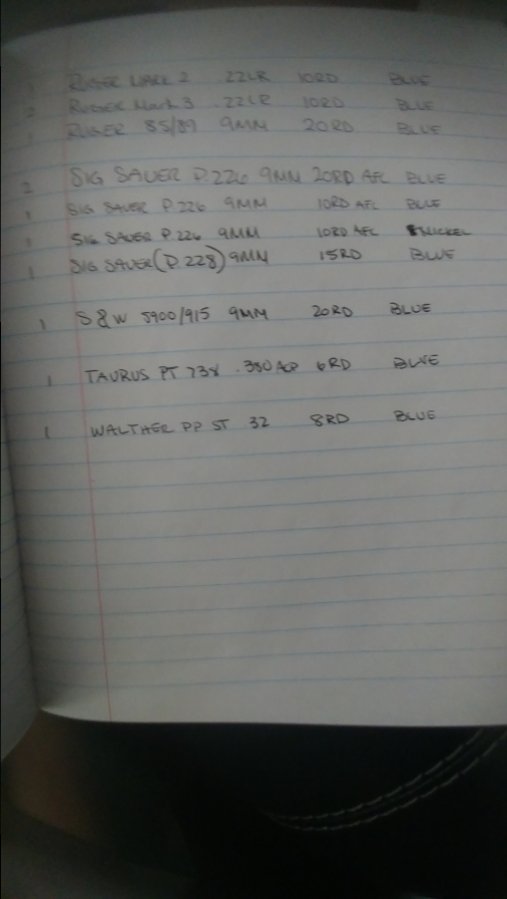 1 RUGER MARK 2 .22LR 10RD BLUE
2 RUGER Mark 3 .22LR 10RD BLUE
1 RUGER 85/89 9MM 20RD BLUE
2 SIG SAUER P.226 9MM 20RD AFL BLUE
1 SIG SAUER P.226 9MM 10RD AFL BLUE
1 SIG SAUER P.226 9MM 10RD AFL NICKEL
1 SIG SAUER (P.228) 9MM 15RD BLUE
1 S&W 5900/915 9MM 20RD BLUE
1 TAURUS PT 738 .380 ACP 6RD BLUE
1 WALTHER PP ST 32 8RD BLUE